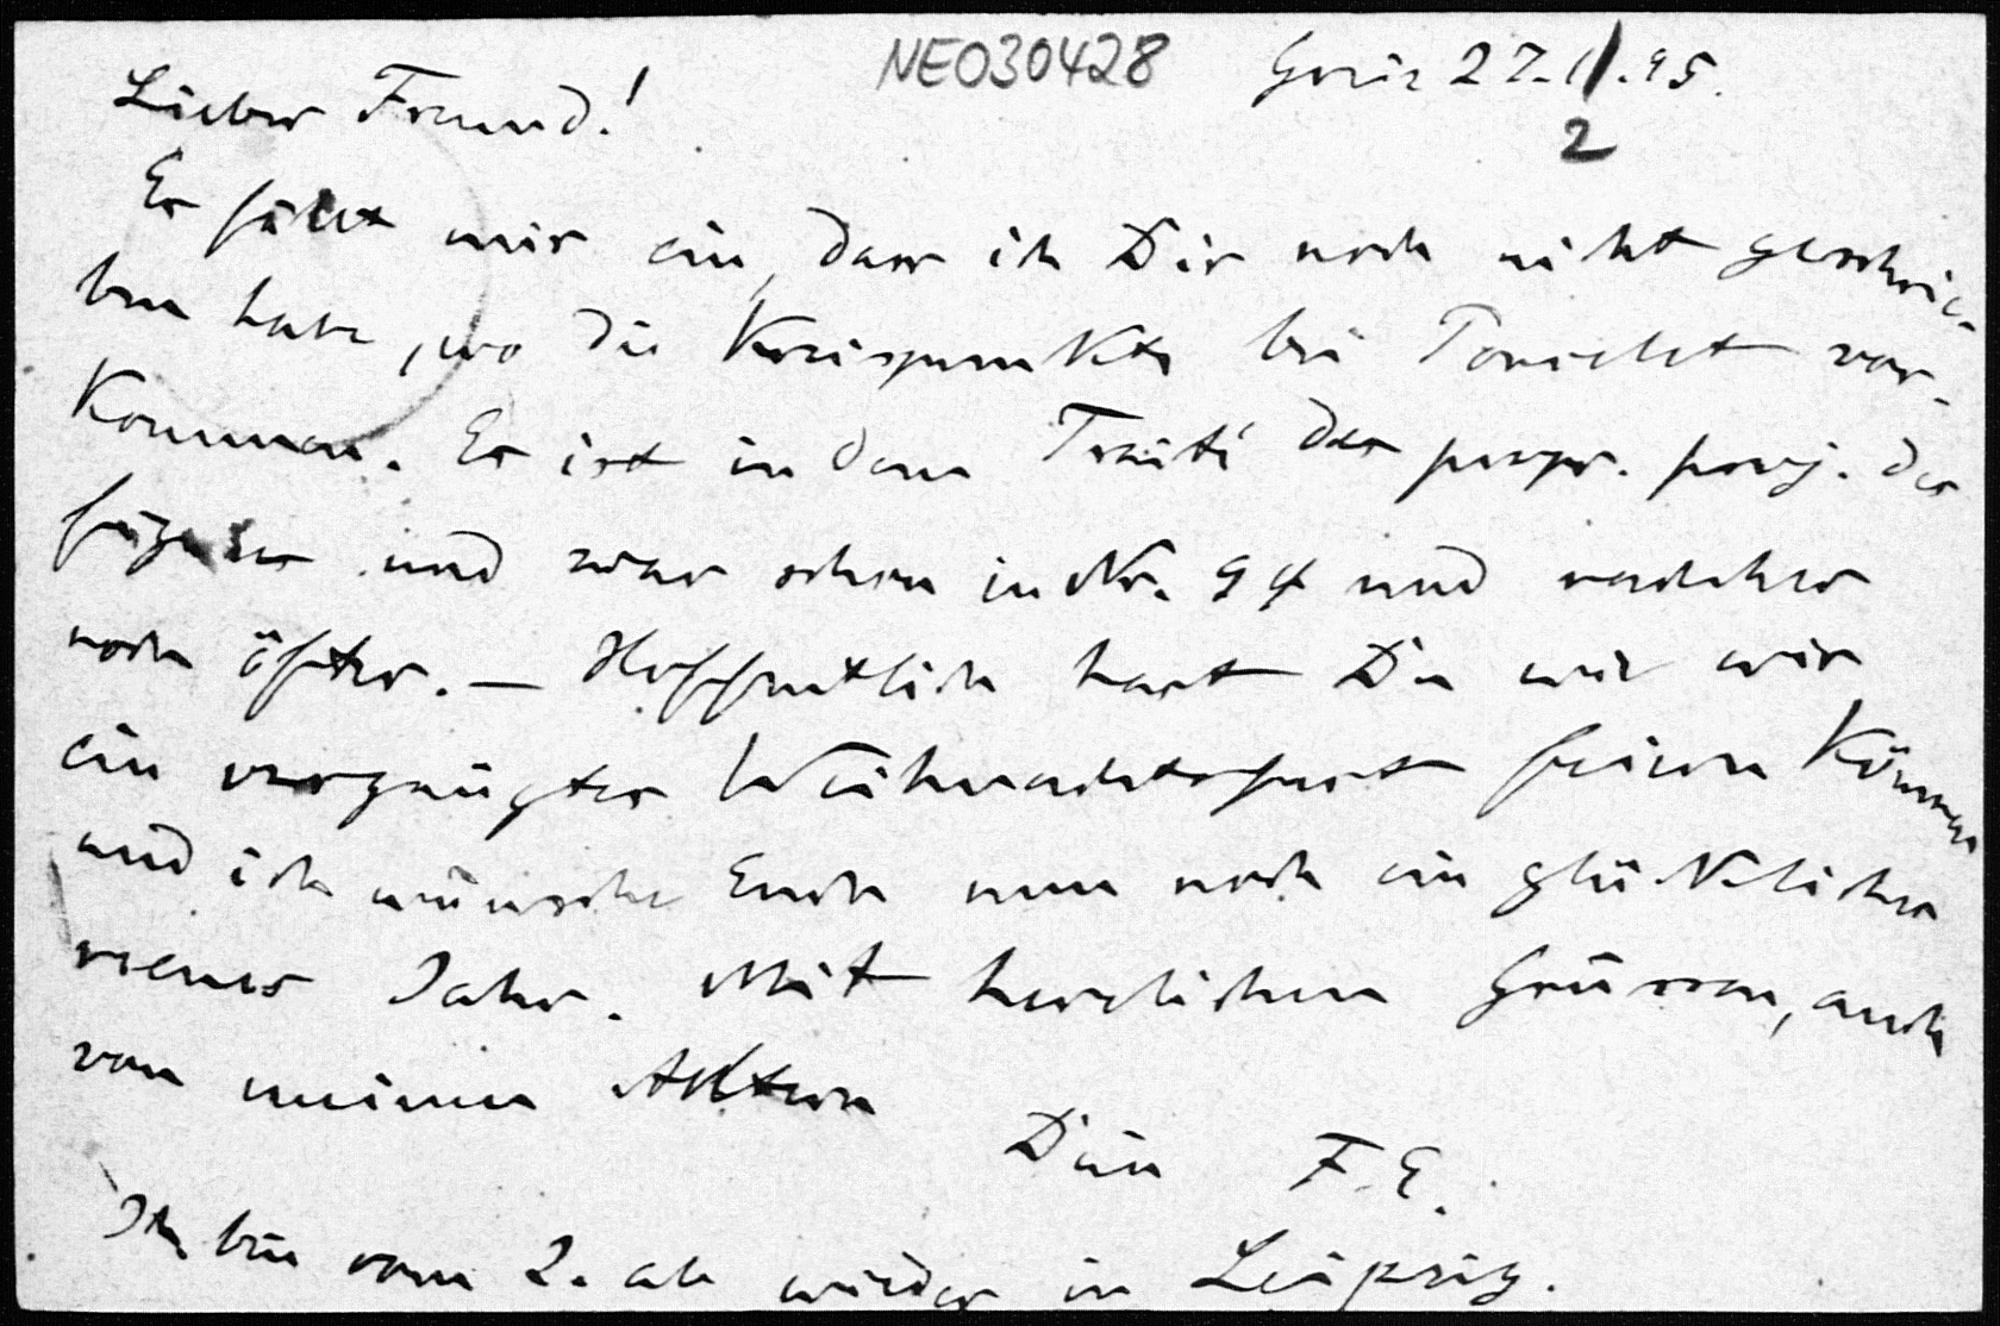 NE030428
Greiz 27.11.95.
2
Lieber Freund!
Es fällt mir ein, dass ich Dir noch nicht geschrie-
ben habe, wo die Kreispunkte bei Poncelet vor-
kommen. Es ist in dem Traité des propr. proj. des
figures und zwar schon in Nr. 94 und nachher
noch öfter. — Hoffentlich hast Du wie wir
ein vergnügtes Weihnachtsfest feiern können
und ich wünsche Euch nun noch ein glückliches
neues Jahr. Mit herzlichen Grüssen, auch
von meinen Aeltern
Dein F. E.
Ich bin vom 2. ab wieder in Leipzig.